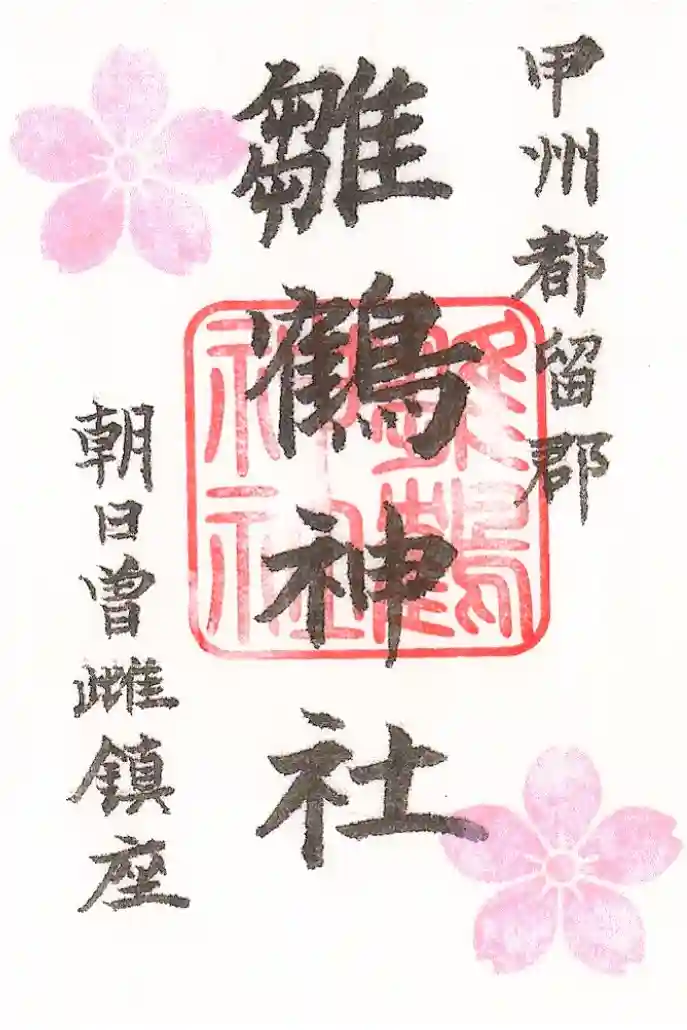 甲州都留郡
雛鶴神社
雛鶴
神社
朝日曽雌鎮座